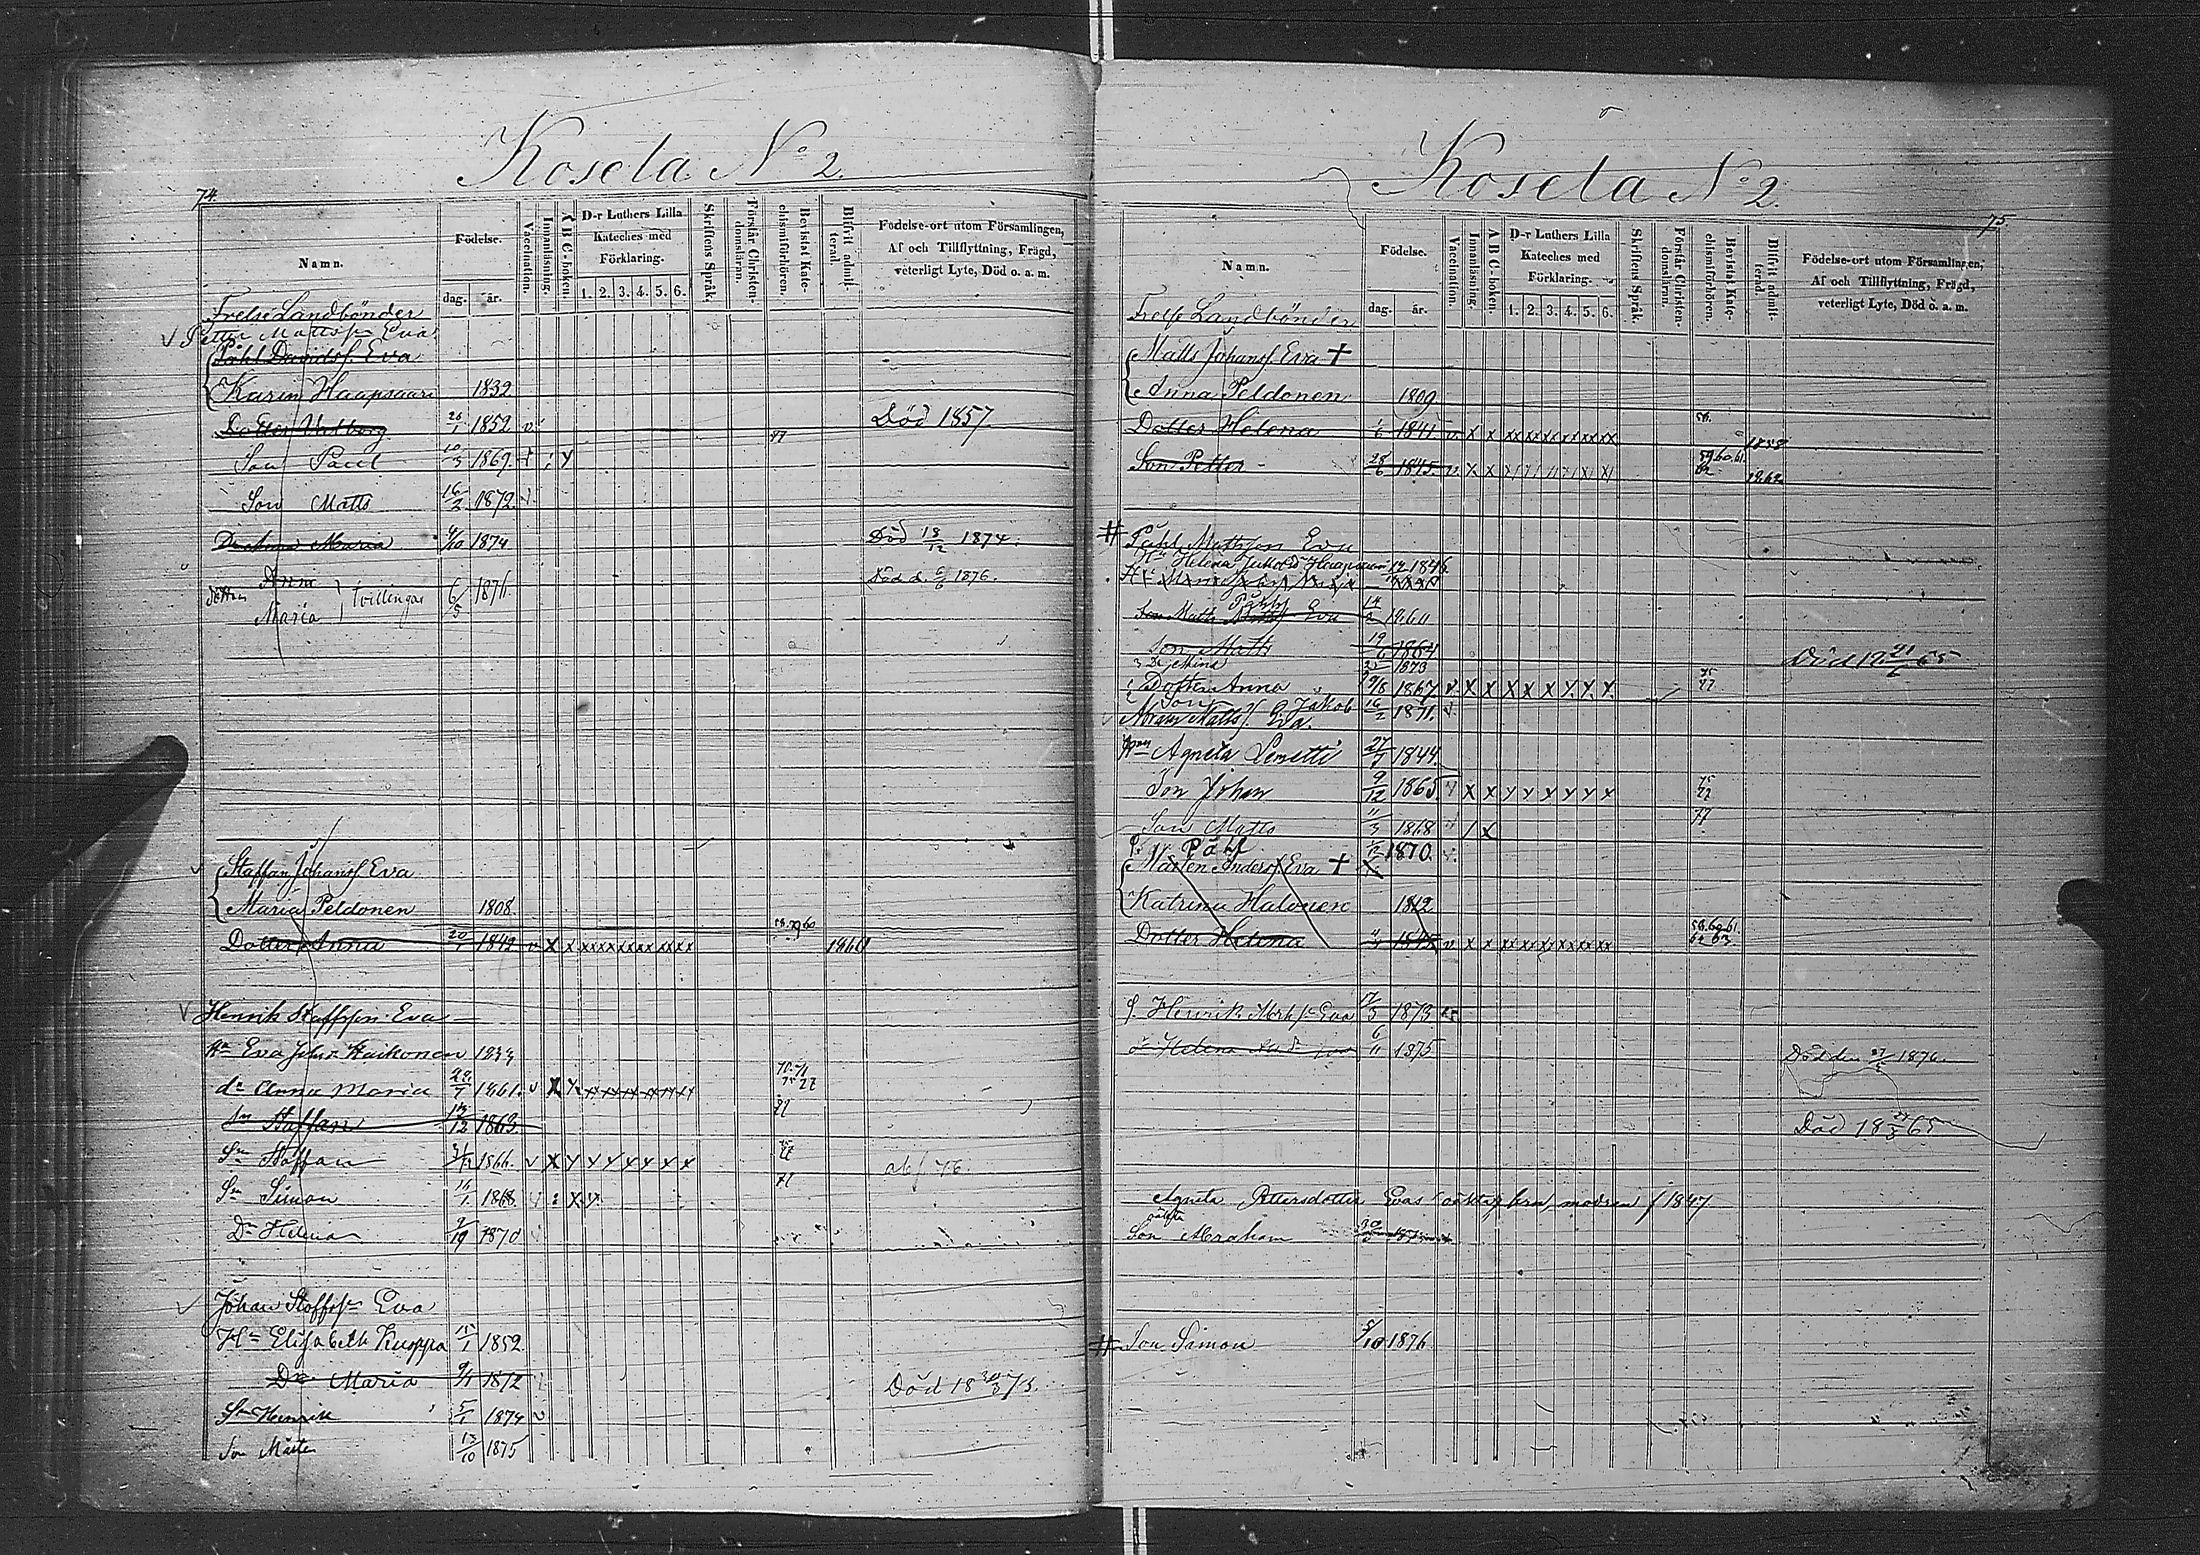 74.
Kosela No 2.
Namn.
Födelse.
dag.
år.
Vaccination.
Innanläsning.
A B C-boken.
D-r Luthers Lilla
Kateches med
Förklaring.
1. 2. 3. 4. 5. 6.
Skriftens Språk.
Förstår Christen-
domsläran.
Bevistat Kate-
chismiförhören.
Blifvit admit-
terad.
Födelse-ort utom Församlingen,
Af och Tillflyttning, Frägd,
veterligt Lyte, Död o. a. m.
Frelse Landbönder
Petter Mattss. Eva
Påhl Davidss. Eva
Karin Haapsaari 1832
Dotter Walborg 26/1 1852 v Död 1857
Son Paul 10/3 1869 77
Son Matts 16/2 1872
Maria 4/10 1874 Död 18/12 1874.
Anna
Död d. 6/6 1876.
dotter tvillingar 6/5 1876
Maria
Staffan Johanss. Eva
Maria Peldonen 1808
Dotter Anna 20/1 1842 v x x xx xx xx xx xx xx 58.59.60 1860
Henrik Staffsson Eva
Hu Eva Johsdr Haikonen 1833
dr Anna Maria 22/7 1861. v x
Sn Staffan 13/12 1863.
Sn Staffan 1866. v x y y y y x x x
Sn Simon 11/1 1868.
Dr Helena 1870
Johan Staffss. Eva
Hu Elisabeth Kuoppa 15/1 1852
Dr Maria 9/1 1872 Död 18 30/3 73.
Sn Henrik 5/1 1874 v
Son Mårten 13/10 1875
Kosela No 2.
75.
Namn.
Födelse.
dag.
år.
Vaccination.
Innanläsning.
A B C-boken.
D-r Luthers Lilla
Kateches med
Förklaring.
1. 2. 3. 4. 5. 6.
Skriftens Språk.
Förstår Christen-
domsläran.
Bevistat Kate-
chismiförhören.
Blifvit admit-
terad.
Födelse-ort utom Församlingen,
Af och Tillflyttning, Frägd,
veterligt Lyte, Död o. a. m.
Frelse Landbönder
Matts Johanss. Eva †
Anna Peldonen 1809
Dotter Helena 1/6 1841 v x x xx xx xx xx xx xx 58. 1858
Son Petter 28/6 1845 v x x 59.60.61. 62 1862
# Påhl Mattsson Eva
Hu Helena Haapsaari 1846
Son Matts Påhlss. Eva 14/2 1860
Son Matts 19/6 1864 Död 18 21/6 65
Dr Mina 1873
Dotter Anna 9/8 1867 v x x x x x x x x 75 77
Son Jakob 16/2 1871. v.
Matts. Eva.
Hu Agneta Lemetti 27/7 1844
Son Johan 9/12 1865 v x x y y x y y x 75 77
Son Matts 11/3 1868 / x 77
S. Påhl 1870. v.
Mårten Anderss. Eva †
Katrina Halonen 1812
Dotter Helena 1845 v x x xx xx xx xx xx xx 58.60.61. 62 63
S. Henrik Eva 17/3 1873
Helena 6/11 1875 Död den 27/5 1876.
Död 18 65
Agneta Pettersdotter Evas modren f 1847
oäkta
Son Abraham
# Son Simon 5/10 1876